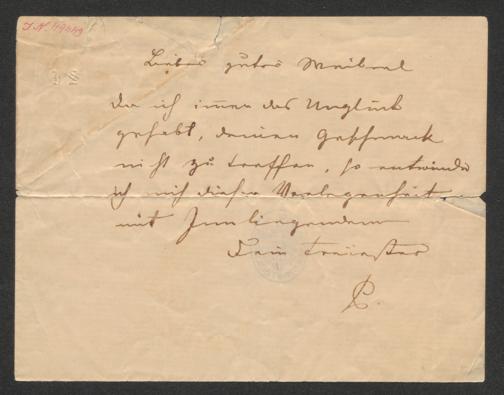 I.N. 119449
Liebes gutes Weiberl
Da ich immer das Unglück
gehabt, deinen Geschmack
nicht zu treffen, so entwinde
ich mich dieser Verlegenheit
mit Innliegendem
Dein treuester